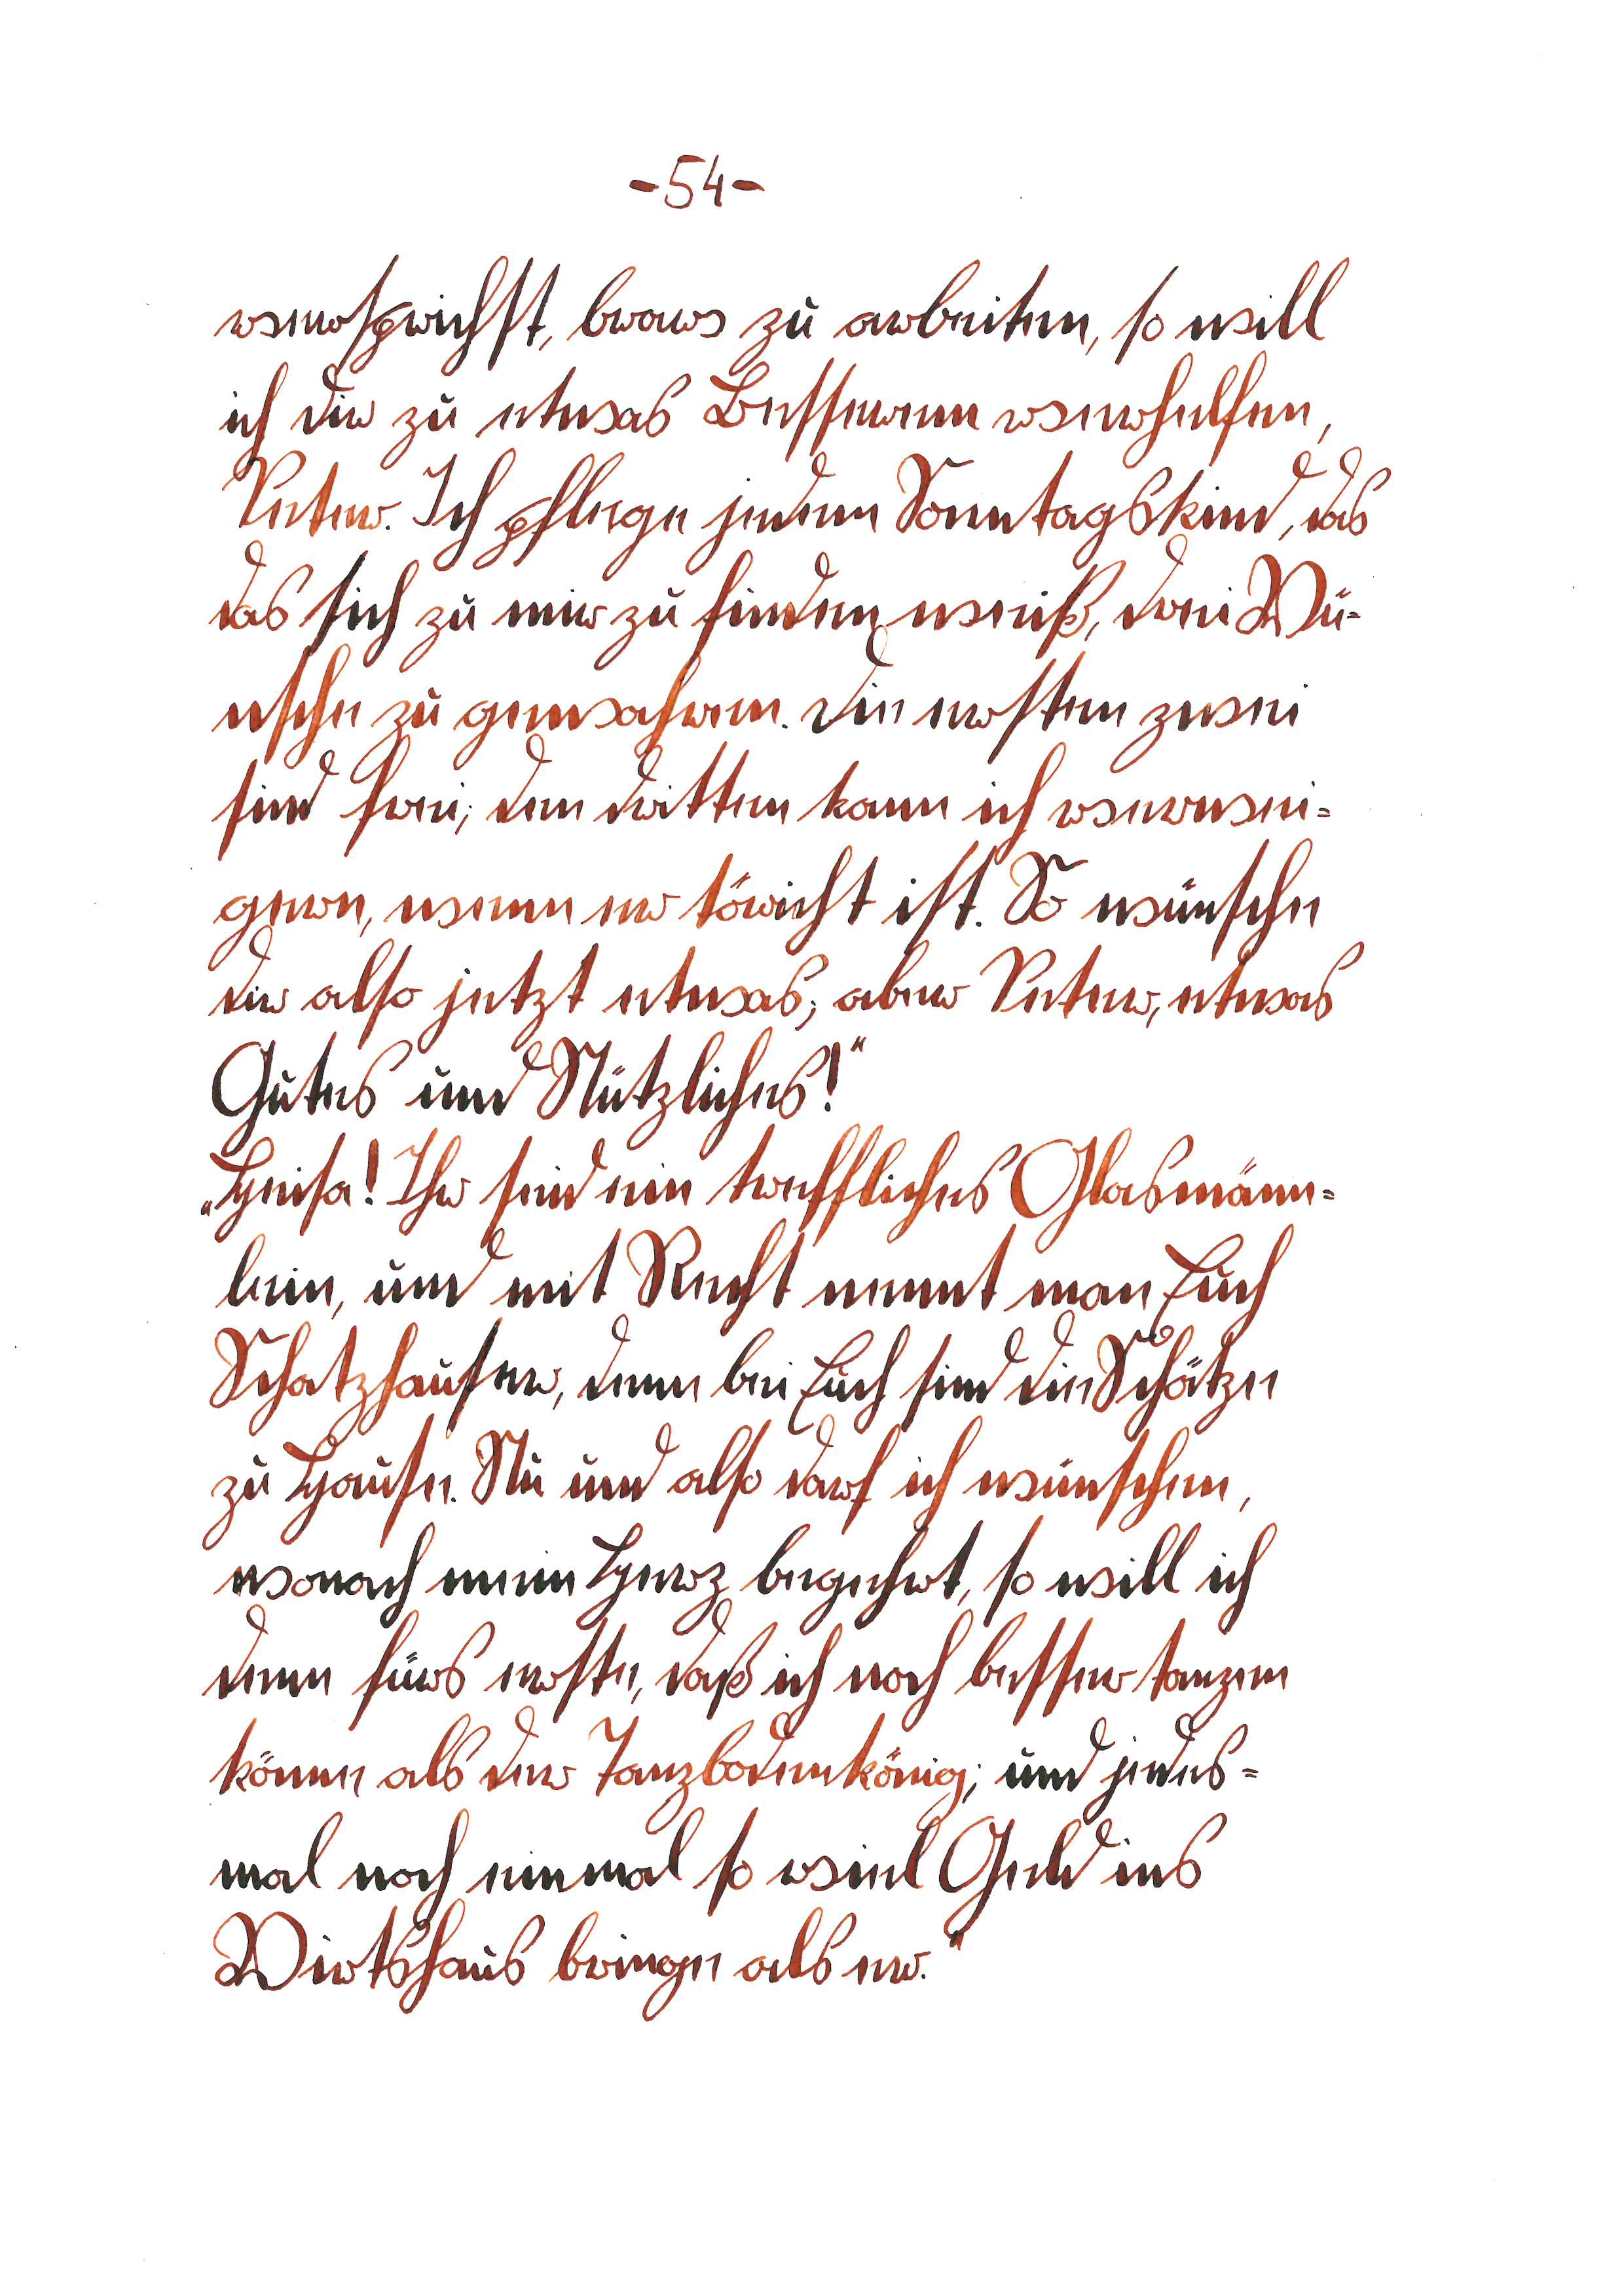 -54-
versprichst, brav zu arbeiten, so will
ich dir zu etwas Besserem verhelfen,
Peter. Ich pflege jedem Sonntagskind, das
das sich zu mir zu finden weiß, drei Wü-
nsche zu gewahren. Die ersten zwei
sind frei; den dritten kann ich verwei=
gern, wenn er töricht ist. So wünsche
dir also jetzt etwas; aber Peter, etwas
Gutes und Nützliches!"
„Heisa! Ihr seid ein treffliches Glasmänn=
lein, und mit Recht nennt man Euch
Schatzhauser, denn bei Euch sind die Schätze
zu Hause. Nu und also darf ich wünschen,
wonach mein Herz begehrt, so will ich
denn fürs erste, daß ich noch besser tanzen
könne als der Tanzbodenkönig; und jedes=
mal noch einmal so viel Geld ins
Wirtshaus bringe als er."